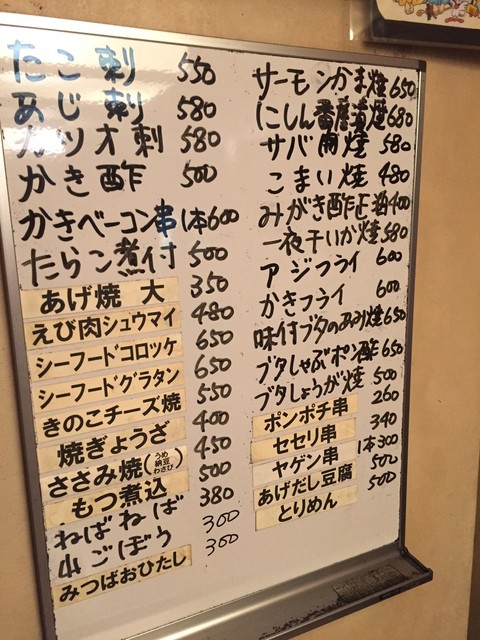 たこ刺 550
あじ刺 580
カツオ刺 580
かき酢 500
かきベーコン串 1本600
たらこ煮付 500
あげ焼 大 350
えび肉シュウマイ 480
シーフードコロッケ 650
シーフードグラタン 650
きのこチーズ焼 550
焼ぎょうざ 400
ささみ焼(うめ 納豆 わさび) 450
もつ煮込 500
ねばねば 380
山ごぼう 300
みつばおひたし 300
サーモンかま焼 650
にしん番屋漬焼 680
サバ開焼 580
こまい焼 480
みがき酢正油 400
一夜干いか焼 580
アジフライ 600
かきフライ 600
味付ブタのあみ焼 650
ブタしゃぶポン酢 650
ブタしょうが焼 500
ボンボチ串 260
セセリ串 340
ヤゲン串 1本300
あげだし豆腐 500
とりめん 500